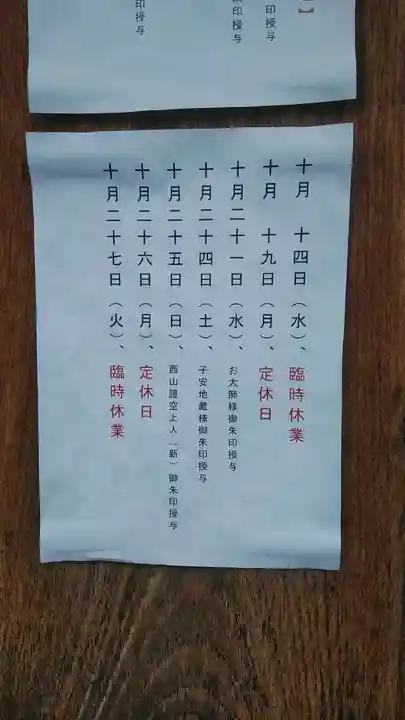 】
朱印授与
朱印授与
印授与
十月 十四日（水）、臨時休業
十月 十九日（月）、定休日
十月二十一日（水）、お大師様御朱印授与
十月二十四日（土）、子安地蔵様御朱印授与
十月二十五日（日）、西山證空上人（新）御朱印授与
十月二十六日（月）、定休日
十月二十七日（火）、臨時休業